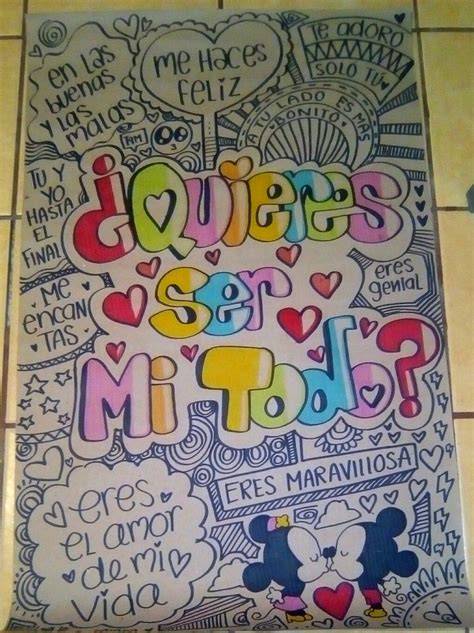 en las
buenas
y las
malas
me haces
feliz
Te adoro
solo tú
A tu lado es más
bonito
Tu y
yo
hasta
el
final
¿Quieres
ser
mi todo?
eres
genial
me
encan
tas
eres maravillosa
eres
el amor
de mi
vida